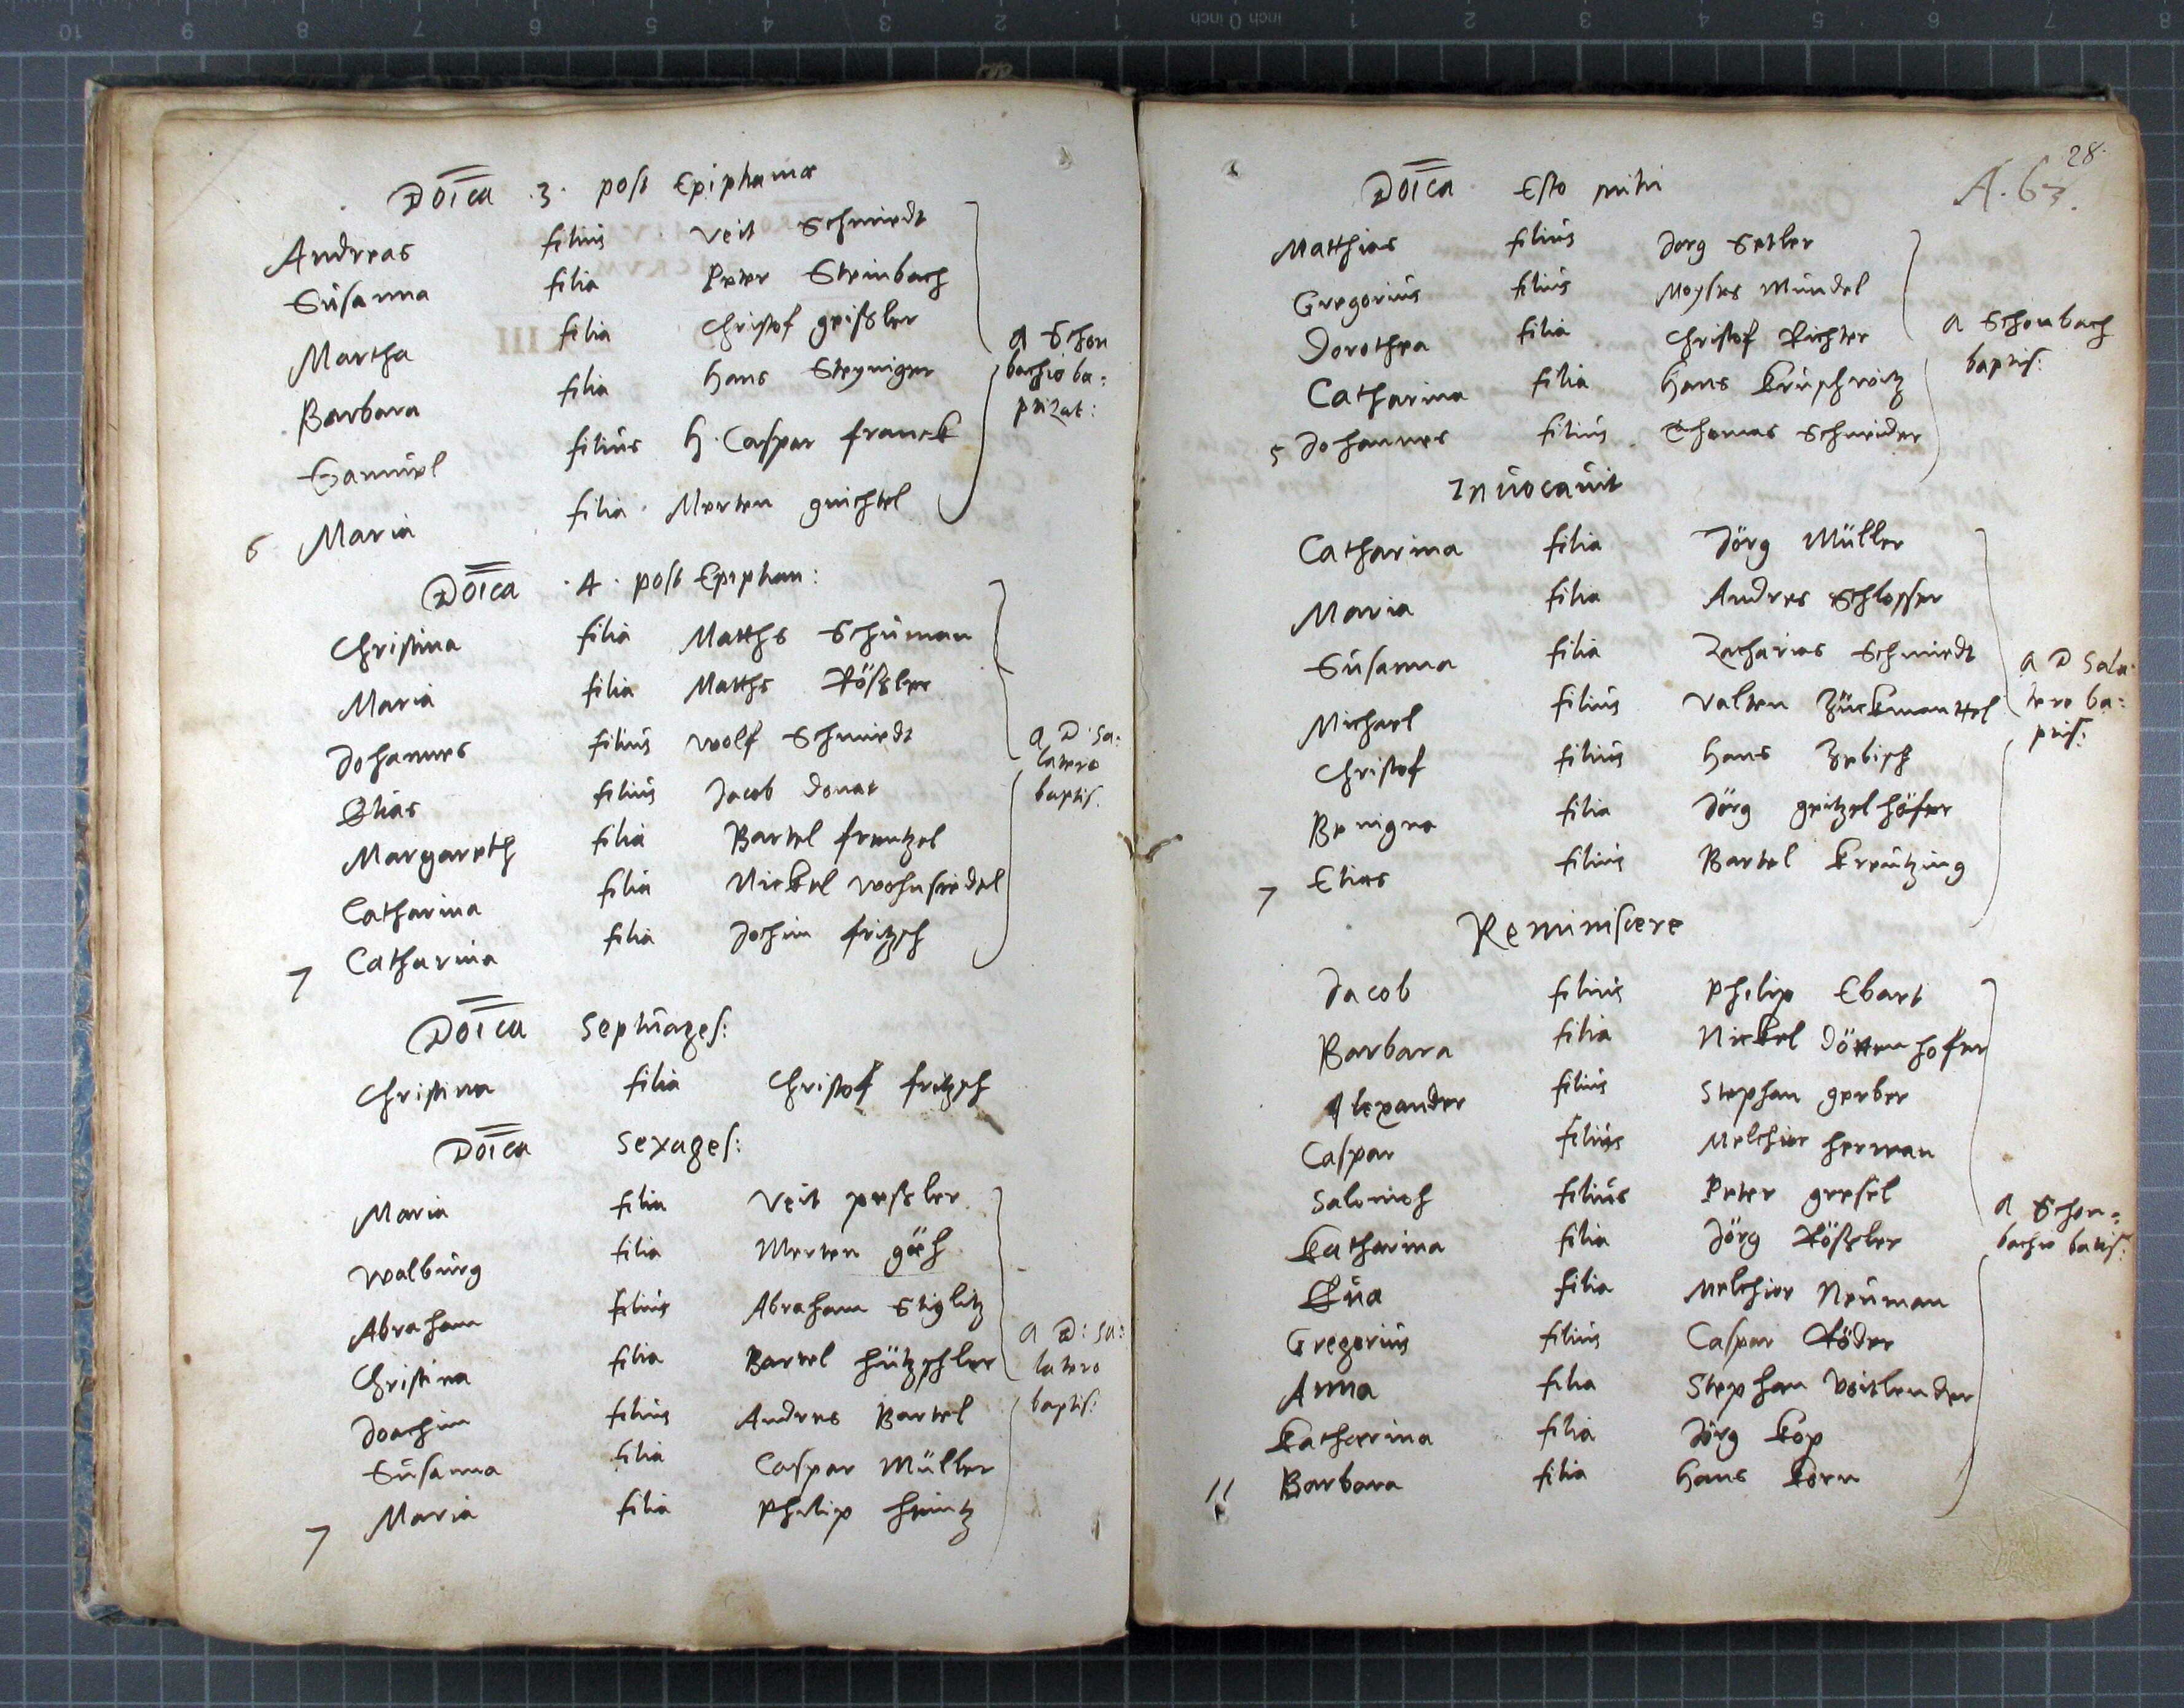 Dōica .3. post Epiphaniæ
Andreas filius Veit Schmiedt
Susanna filia Peter Steinbach
Martha filia Christof geißler
Barbara filia Hans Steyniger
Samuel filius H. Caspar franck
6 Maria filia Merten guichtel
a Schon
bachio ba:
ptizat:
Dōica .4. post Epiphan:
Christina filia Matths Schuman
Maria filia Matths Rößler
Johannes filius Wolf Schmiedt
Elias filius Jacob Donat
Margareth filia Bartel frentzel
Catharina filia Nickel wohnsiedel
7 Catharina filia Jochim fritzsch
a D: Sa:
latero
baptis.
Dōica Septuages:
Christina filia Christof fritzsch
Dōica Sexages:
Maria filia Veit peßler
Walburg filia Merten
Abraham filius Abraham Stiglitz
Christina filia Bartel hützschler
Joachim filius Andres Bartel
Susanna filia Caspar Müller
7 Maria filia Philip heintz
a D: Sa:
latero
baptis:
28.
A. 63.
Dōica Esto mihi
Matthias filius Jorg Setler
Gregorius filius Moyses Mundel
Dorothea filia Christof Richter
Catharina filia Hans
5 Johannes filius Thomas Schneider
a Schonbach
baptis:
Inuocauit
Catharina filia Jörg Müller
Maria filia Andres Schlosser
Susanna filia Zacharias Schmiedt
Michael filius Valten Zückmanttel
Christof filius Hans Zebisch
Benigna filia Jörg geitzelhöfer
7 Elias filius Bartel Kreutzing
a D Sala
tero ba:
ptis:
Reminiscere
Jacob filius Philip Ebart
Barbara filia Nickel Döttenhofer
Alexander filius Stephan gerber
Caspar filius Melchior herman
Salomoh filius Peter gresel
Katharina filia Jörg Rößler
Eua filia Melchior Neuman
Gregorius filius Caspar Röder
Anna filia Stephan Voitlender
Katharina filia Jörg Kop
11 Barbara filia Hans Korn
a Schon=
bachio batis: